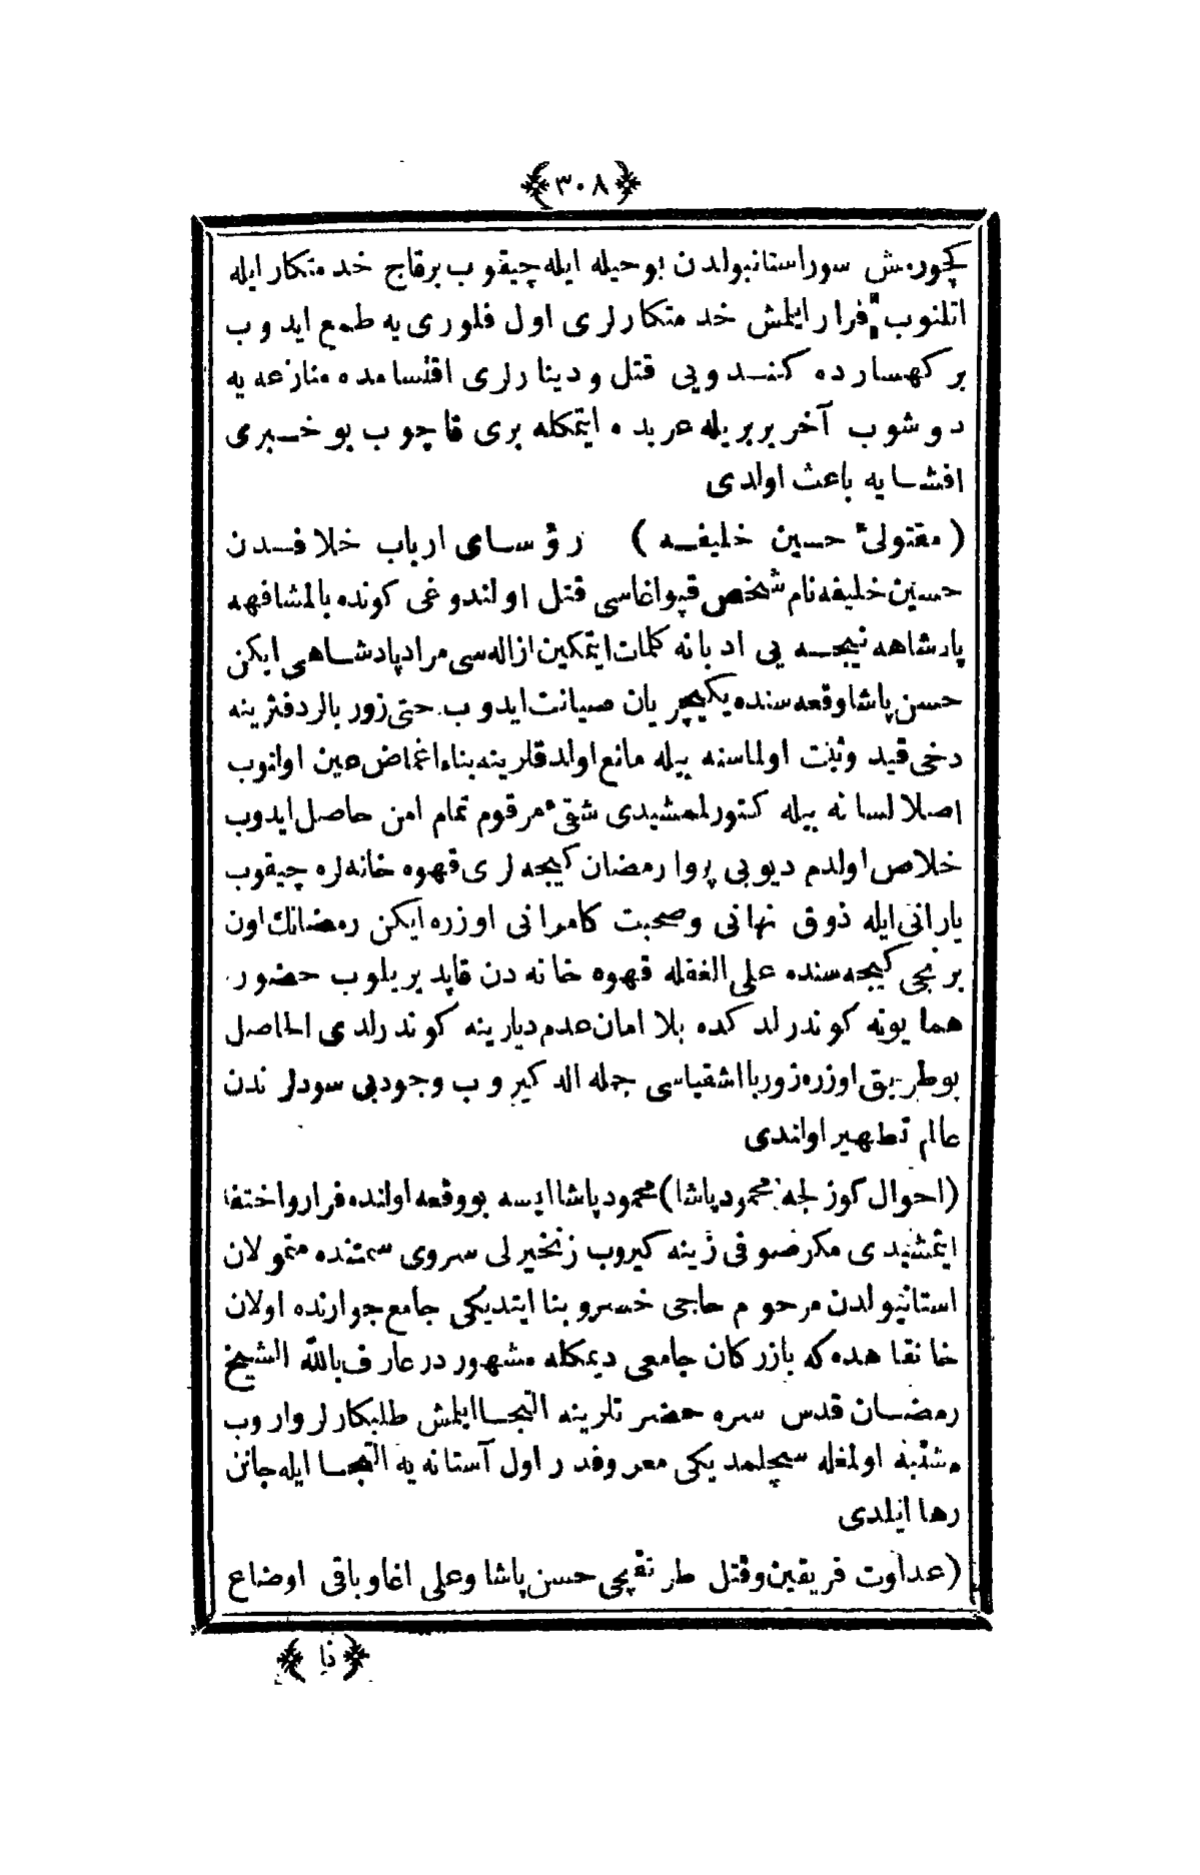 ﴿٣٠٨﴾
كچورمش سور استانبولدن بوحيله ايله چيقوب برقاج خدمتكار ايله
اتلنوب فرار ايلمش خدمتكارلری اول فلوری يه طمع ايدوب
بر كهسارده كندويی قتل ودينارلری اقتسامده منازعه يه
دوشوب آخر بربريله عربده ايتمكله بری قاچوب بو خبری
افشايه باعث اولدی
(مقتولئ حسين خليفه) رؤسای ارباب خلافدن
حسين خليفه نام شخص قپواغاسی قتل اولندوغی كونده بالمشافهه
پادشاهه نيجه بی ادبانه كلمات ايتمكين ازاله سی مراد پادشاهی ايكن
حسن پاشا وقعه سنده يكيچريان صيانت ايدوب حتی زوربالر دفترينه
دخی قيد وثبت اولماسنه بيله مانع اولدقلرينه بناء اغماض عين اولنوب
اصلا لسانه بيله كتورلمشيدی شقئ مرقوم تمام امن حاصل ايدوب
خلاص اولدم ديو بی پروا رمضان كيجه لری قهوه خانه لره چيقوب
يارانی ايله ذوق نهانی وصحبت كامرانی اوزره ايكن رمضانك اون
برنجی كيجه سنده علی الغفله قهوه خانه دن قاپديريلوب حضور
همايونه كوندرلدكده بلا امان عدم ديارينه كوندرلدی الحاصل
بوطريق اوزره زوربا اشقياسی جمله اله كيروب وجودبی سودلرندن
عالم تطهير اولندی
(احوال كوزلجه محمود پاشا) محمود پاشا ايسه بووقعه اولنده فرار واختفا
ايتمشيدی مكر صوفی زينه كيروب زنخيرلی سروی سمتنده متمولان
استانبولدن مرحوم حاجی خسرو بنا ايتديكی جامع جوارنده اولان
خانقاهده كه بازركان جامعی ديمكله مشهوردر عارف بالله الشيخ
رمضان قدس سره حضرتلرينه التجا ايلمش طلبكارلر واروب
مشتبه اولمغله سچلمديكی معروفدر اول آستانه يه التجا ايله جانن
رها ايلدی
(عداوت فريقين وقتل طرنقچی حسن پاشا وعلی اغا وباقی اوضاع
﴿نا﴾